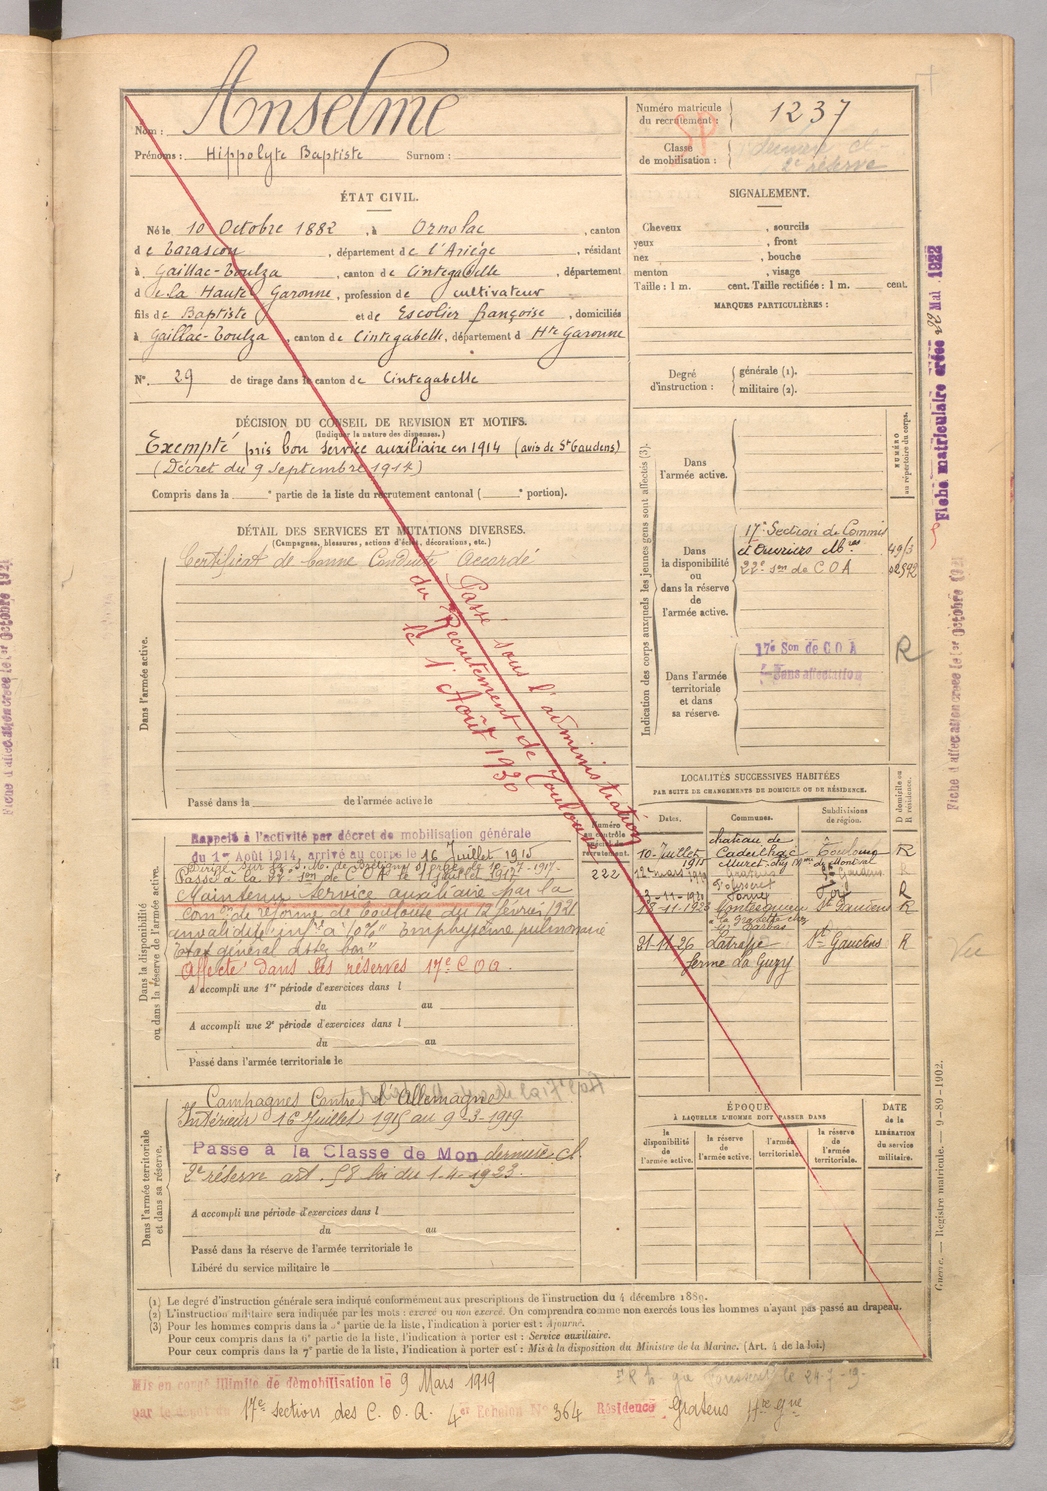 Anselme
Nom :
Prénoms : Hippolyte Baptiste Surnom :
Numéro matricule
du recrutement : 1237
SP
Classe
de mobilisation : dernière cl.
2e réserve
ÉTAT CIVIL.
Né le 10 Octobre 1882, à Ornolac, canton
de Tarascon, département de l'Ariège, résidant
à Gaillac-Toulza, canton de Cintegabelle, département
de la Haute Garonne, profession de cultivateur
fils de Baptiste et de Escolier françoise, domiciliés
à Gaillac-Toulza, canton de Cintegabelle, département d Hte Garonne
N° 29 de tirage dans le canton de Cintegabelle
SIGNALEMENT.
Cheveux , sourcils
yeux , front
nez , bouche
menton , visage
Taille : 1 m. cent. Taille rectifiée : 1 m. cent.
MARQUES PARTICULIÈRES :
Degré
d'instruction :
générale (1).
militaire (2).
DÉCISION DU CONSEIL DE REVISION ET MOTIFS.
(Indiquer la nature des dispenses.)
Exempté pris bon service auxiliaire en 1914 (avis de St Gaudens)
(Décret du 9 septembre 1914)
Compris dans la e partie de la liste du recrutement cantonal ( e portion).
DÉTAIL DES SERVICES ET MUTATIONS DIVERSES.
(Campagnes, blessures, actions d'éclat, décorations, etc.)
Certificat de bonne Conduite Accordé
Passé sous l'administration
du Recrutement de Toulouse
le 1er Août 1930
Dans l'armée active.
Passé dans la de l'armée active le
Indication des corps auxquels les jeunes gens sont affectés (3).
NUMÉRO
au répertoire du corps.
Dans
l'armée active.
Dans
la disponibilité
ou
dans la réserve
de
l'armée active.
17e Section de Commis
et Ouvriers Mres 49/3
22e son de C O A
Dans l'armée
territoriale
et dans
sa réserve.
17e Son de C O A
Sans affectation
R
Fiche matriculaire créée 22 Mai 1922
Fiche d'affectation créée le 1er Octobre 192
Fiche d'affectation créée le 1er Octobre 192
LOCALITÉS SUCCESSIVES HABITÉES
PAR SUITE DE CHANGEMENTS DE DOMICILE OU DE RÉSIDENCE.
Dates. Communes. Subdivisions
de région.
D domicile ou
R résidence.
Numéro
au contrôle
spécial du
recrutement.
222
10-Juillet 1915 chateau de
Cadeilhac Toulouse R
Muret chez Mme de Montval
12 mars 1919 Gratens St Gaudens R
3-11-1920 R
12-11-1923 Montesquieu St Gaudens R
21-11-26 Latrape St Gaudens R
ferme La Guzy
Vu
Dans la disponibilité
ou dans la réserve de l'armée active.
Rappelé à l'activité par décret de mobilisation générale
du 1er Août 1914, arrivé au corps le 16 Juillet 1915
Passé à la 22e son de C O A le 11 Juillet 1917
Maintenu Service auxiliaire par la
Comon de réforme de Toulouse du 12 février 1921
invalidité infre à 10% "Emphysème pulmonaire
Etat général assez bon"
Affecté dans les réserves 17e C O A.
A accompli une 1re période d'exercices dans l
du au
A accompli une 2e période d'exercices dans l
du au
Passé dans l'armée territoriale le
Dans l'armée territoriale
et dans sa réserve.
Campagnes Contre l'Allemagne
Intérieur 16 Juillet 1915 au 9-3-1919
Passé à la Classe de Mon dernière cl.
2e réserve art. 58 loi du 1-4-1923.
A accompli une période d'exercices dans l
du au
Passé dans la réserve de l'armée territoriale le
Libéré du service militaire le
ÉPOQUE
À LAQUELLE L'HOMME DOIT PASSER DANS
la
disponibilité
de
l'armée active.
la réserve
de
l'armée active.
l'armée
territoriale.
la réserve
de
l'armée
territoriale.
DATE
de la
LIBÉRATION
du service
militaire.
Guerre. — Registre matricule. — 9-89-1902.
(1) Le degré d'instruction générale sera indiqué conformément aux prescriptions de l'instruction du 4 décembre 1889.
(2) L'instruction militaire sera indiquée par les mots : exercé ou non exercé. On comprendra comme non exercés tous les hommes n'ayant pas passé au drapeau.
(3) Pour les hommes compris dans la 5e partie de la liste, l'indication à porter est : Ajourné.
Pour ceux compris dans la 6e partie de la liste, l'indication à porter est : Service auxiliaire.
Pour ceux compris dans la 7e partie de la liste, l'indication à porter est : Mis à la disposition du Ministre de la Marine. (Art. 4 de la loi.)
Mis en congé illimité de démobilisation le 9 Mars 1919
par le dépôt du 17e section des C. O. A. 4er Echelon N° 364 Résidence Gratens Hte Gne